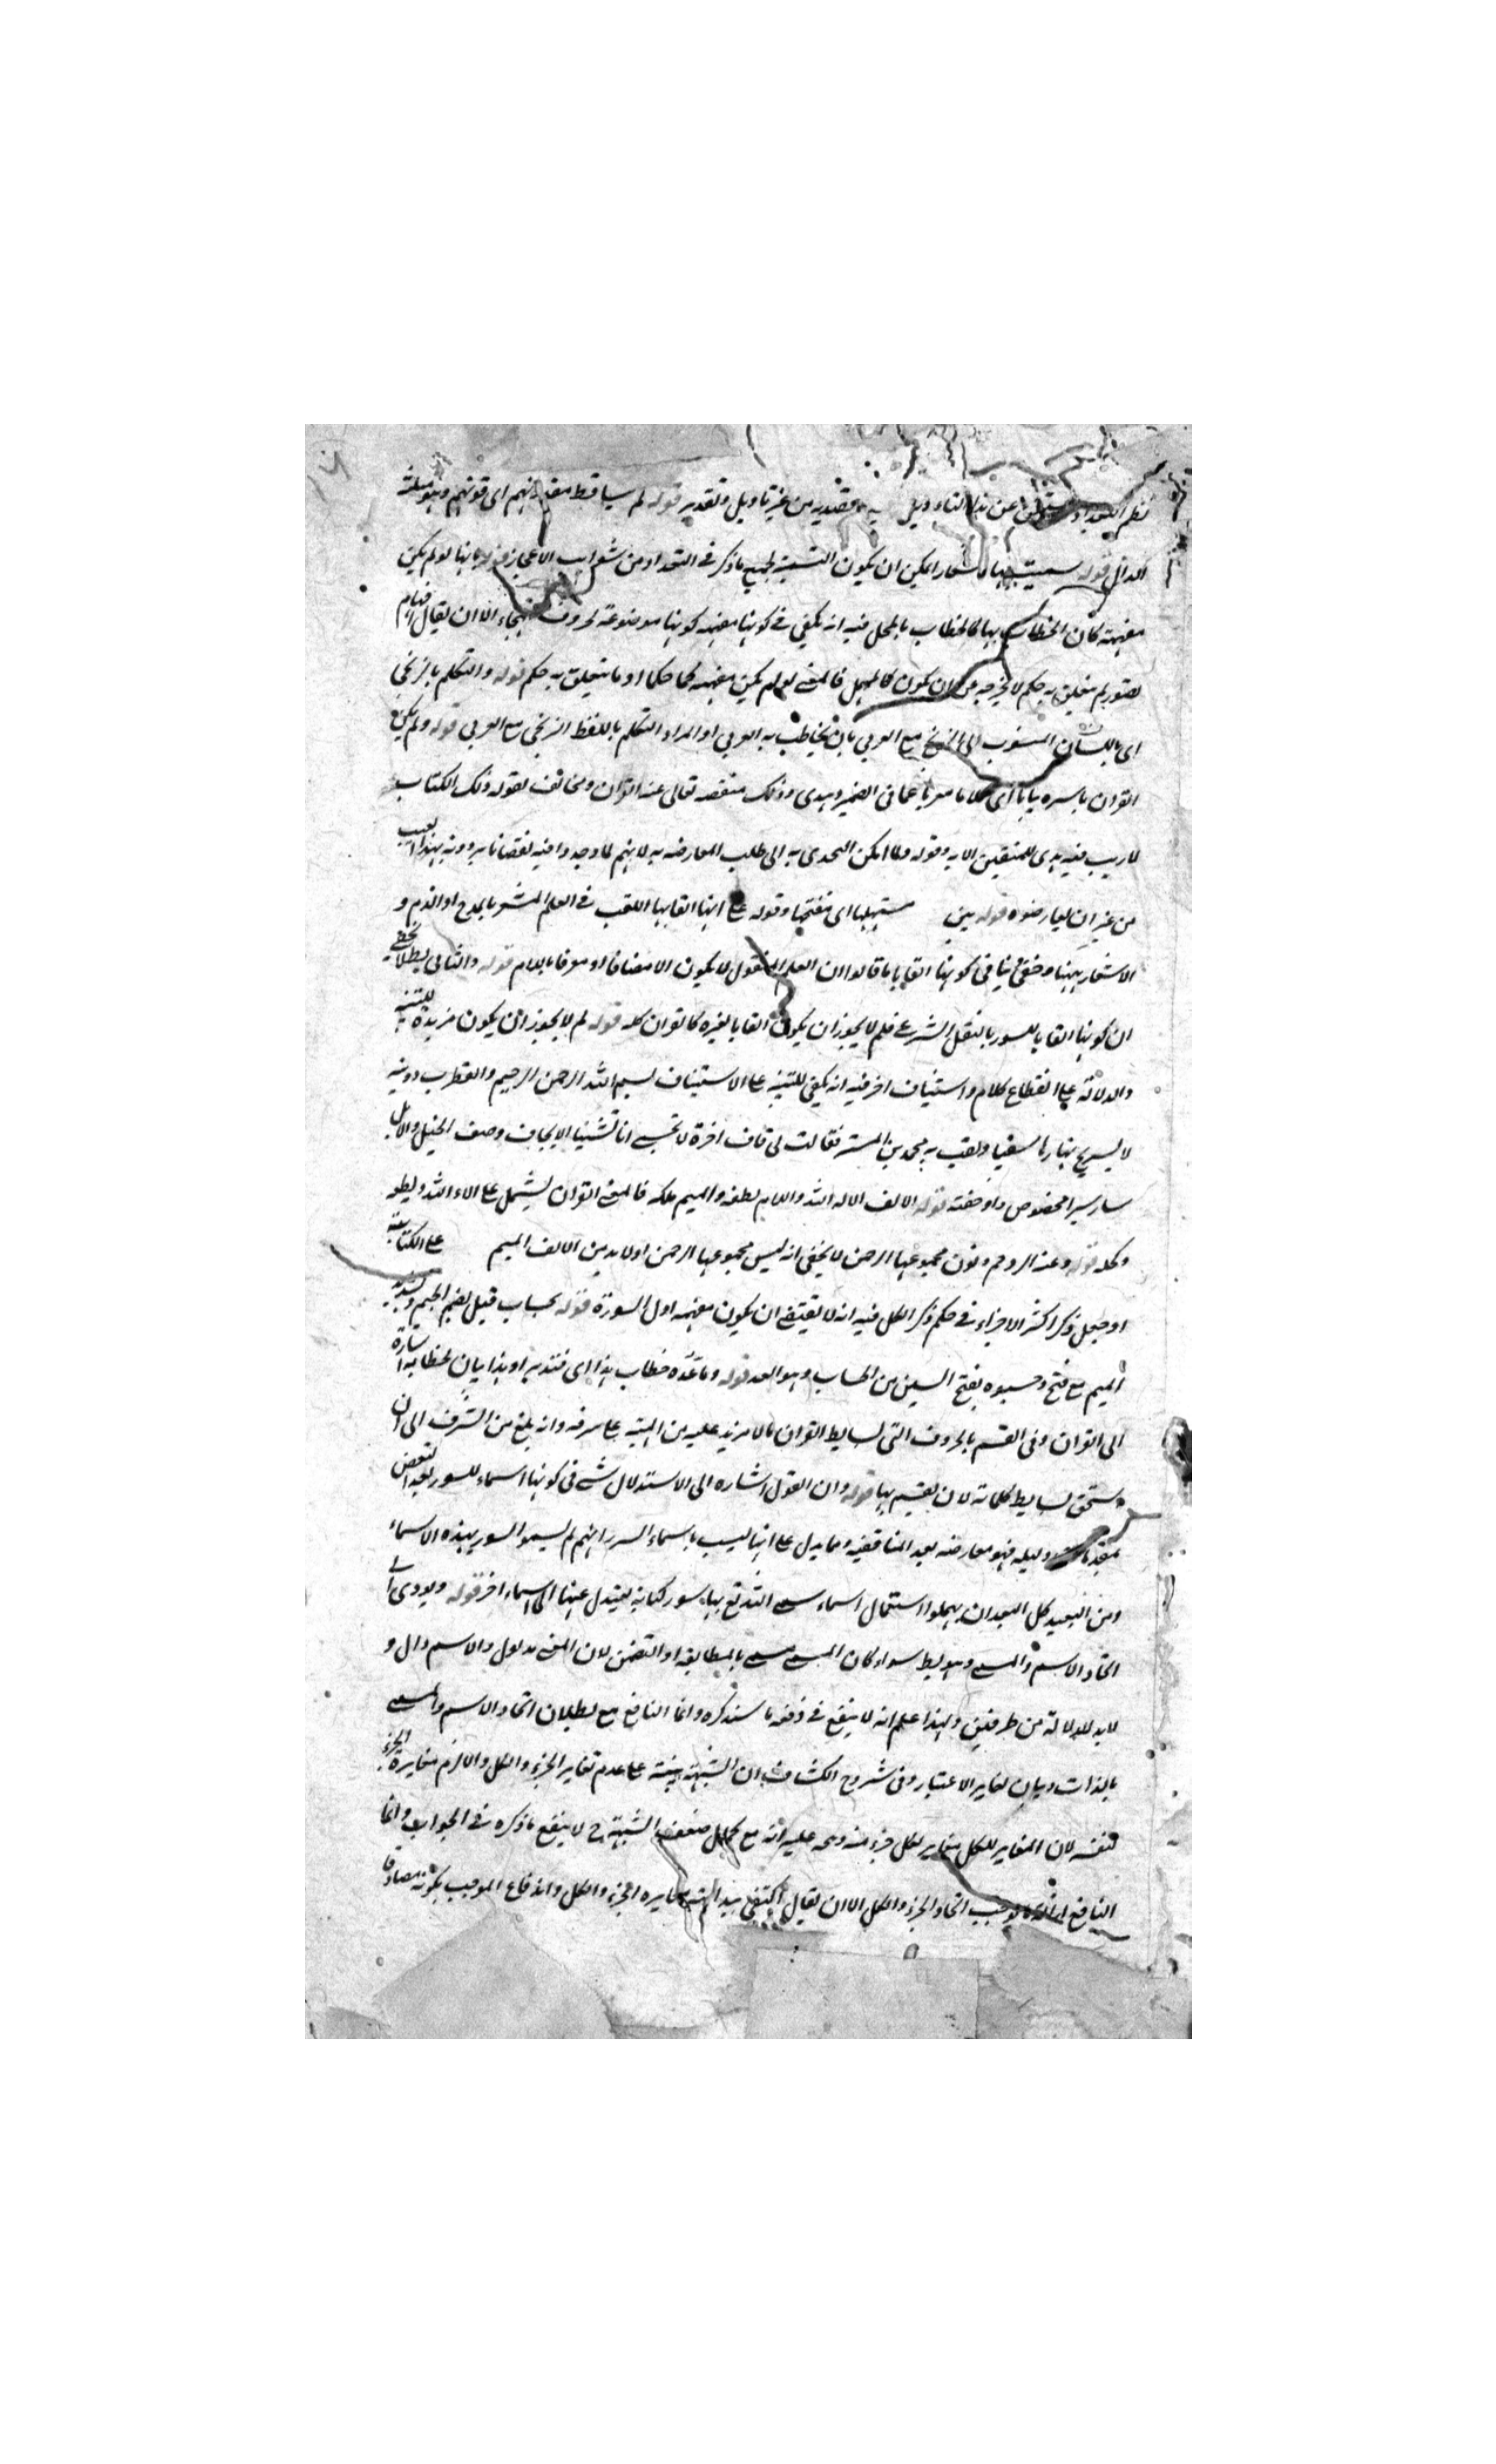 نظم التعداد عن هذا التاويل من غير تاويل وتقدير قوله لم تتساقط مقدرتهم اى قوتهم وهو مثلثة
الدال قوله سميت بها اشعارا يمكن ان يكون التسمية لجميع ما ذكر فى التعداد من غرايب الاعجاز قوله بانها لو لم تكن
مفهمة كان الخطاب بها كالخطاب بالمهمل فيه انه يكفى فى كونها مفهمة كونها موضوعة لحروف الهجاء الا ان يقال افهام
تصور لم يتعلق به حكم لا يخرجه عن ان يكون كالمهمل فالمعنى لو لم تكن مفهمة حكما او ما يتعلق به حكم قوله والتكلم بالزنجى
اى باللسان المنسوب الى الزنج مع العربى بان يخاطب به العربى او المراد التكلم باللفظ الزنجى مع العربى قوله ولم يكن
القران باسره بيانا اى كلاما معربا عما فى الضمير وهدى وذلك منقصة تعالى عنه القران ومخالف لقوله ذلك الكتاب
لا ريب فيه هدى للمتقين الاية وقوله ولما امكن التحدى به الى طلب المعارضة به لانهم لما وجدوا فيه نقصانا يردونه بهذا العيب
من غير ان يعارضوه قوله بين مستهلها اى مفتتحها وقوله على انها القابها اللقب فى العلم المشعر بالمدح او الذم و
الاشعار ههنا وخفى ينافى كونها القابا ما قالوا ان العلم المنقول لا يكون الا مضافا او معرفا باللام قوله والثانى باطل لا يخفى
ان كونها القابا للسور بالنقل الشرعى فلم لا يجوز ان يكون القابا لغيره كالقران كله قوله لم لا يجوز ان يكون مزيدة للتنبيه
والدلالة على انقطاع كلام واستيناف اخر فيه انه يكفى للتنبيه على الاستيناف بسم الله الرحمن الرحيم والقطرب دويبة
لا يستريح نهارها سعيا ولقب به محمد بن المستنير فقالت لى قاف اخره لا تحسبى انا نسينا الايجاف وصف الخيل والابل
سار سيرا مخصوص واوجفته قوله الالف الاء الله واللام لطفه والميم ملكه فالمعنى القران يشتمل على الاء الله ولطفه
وملكه قوله وعنه الر وحم ونون مجموعها الرحمن لا يخفى انه ليس مجموعها الرحمن اولا بد من الالف الميم على الكتابة
او جعل ذكر اكثر الاجزاء فى حكم ذكر الكل فيه انه لا يقتضى ان يكون مفهمة اول السورة قوله بحساب قيل بضم الجيم وتشديد
الميم مع فتح وحسبوه بفتح السين من الحساب وهو العد قوله وما عده خطاب هذا اى فتدبر او هذا بيان لخطابه اشارة
الى القران وفى القسم بالحروف التى بسايط القران ما لا مزيد عليه من التنبيه على شرفه وانه بلغ من الشرف الى ان
يستحق بسايط كلماته لان يقسم بها قوله وان القول اشارة الى الاستدلال فى كونها اسماء للسور بعد النقض
بمقدمات دليله فهو معارضة بعد المناقضة ومما يدل على انها ليست باسماء السور انهم لم يسموا السور بهذه الاسماء
ومن البعيد كل البعد ان يهملوا استعمال اسماء سمى الله تع بها سور كتابه ليعدل عنها الى اسماء اخر قوله ويودى الى
اتحاد الاسم والمسمى وهو بط سواء كان المسمى مسمى بالمطابقة او التضمن لان المعنى مدلول والاسم دال و
لا بد للدلالة من طرفين ولهذا علم انه لا ينفع فى دفعه ما سنذكره وانما النافع مع بطلان اتحاد الاسم والمسمى
بالذات وبيان تغاير الاعتبار وفى شروح الكشاف ان الشبهة مبنية على عدم تغاير الجزء والكل والا لزم مغايرة الجزء
لنفسه لان المغاير للكل مغاير لكل جزء منه عليه انه مع كمال ضعف الشبهة ح لا ينفع ما ذكره فى الجواب وانما
النافع اتحاد الجزء والكل الا ان يقال اكتفى ببداهة مغايرة الجزء والكل واندفاع الموجب بكونه مصادقا